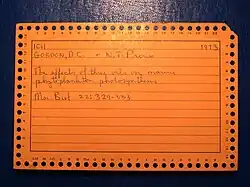 1973
GORDON, D.C. - N.J. Prouse
The effects of three oils on marine
phytoplankton photosynthesis
Mar. Biol. 22: 329-333